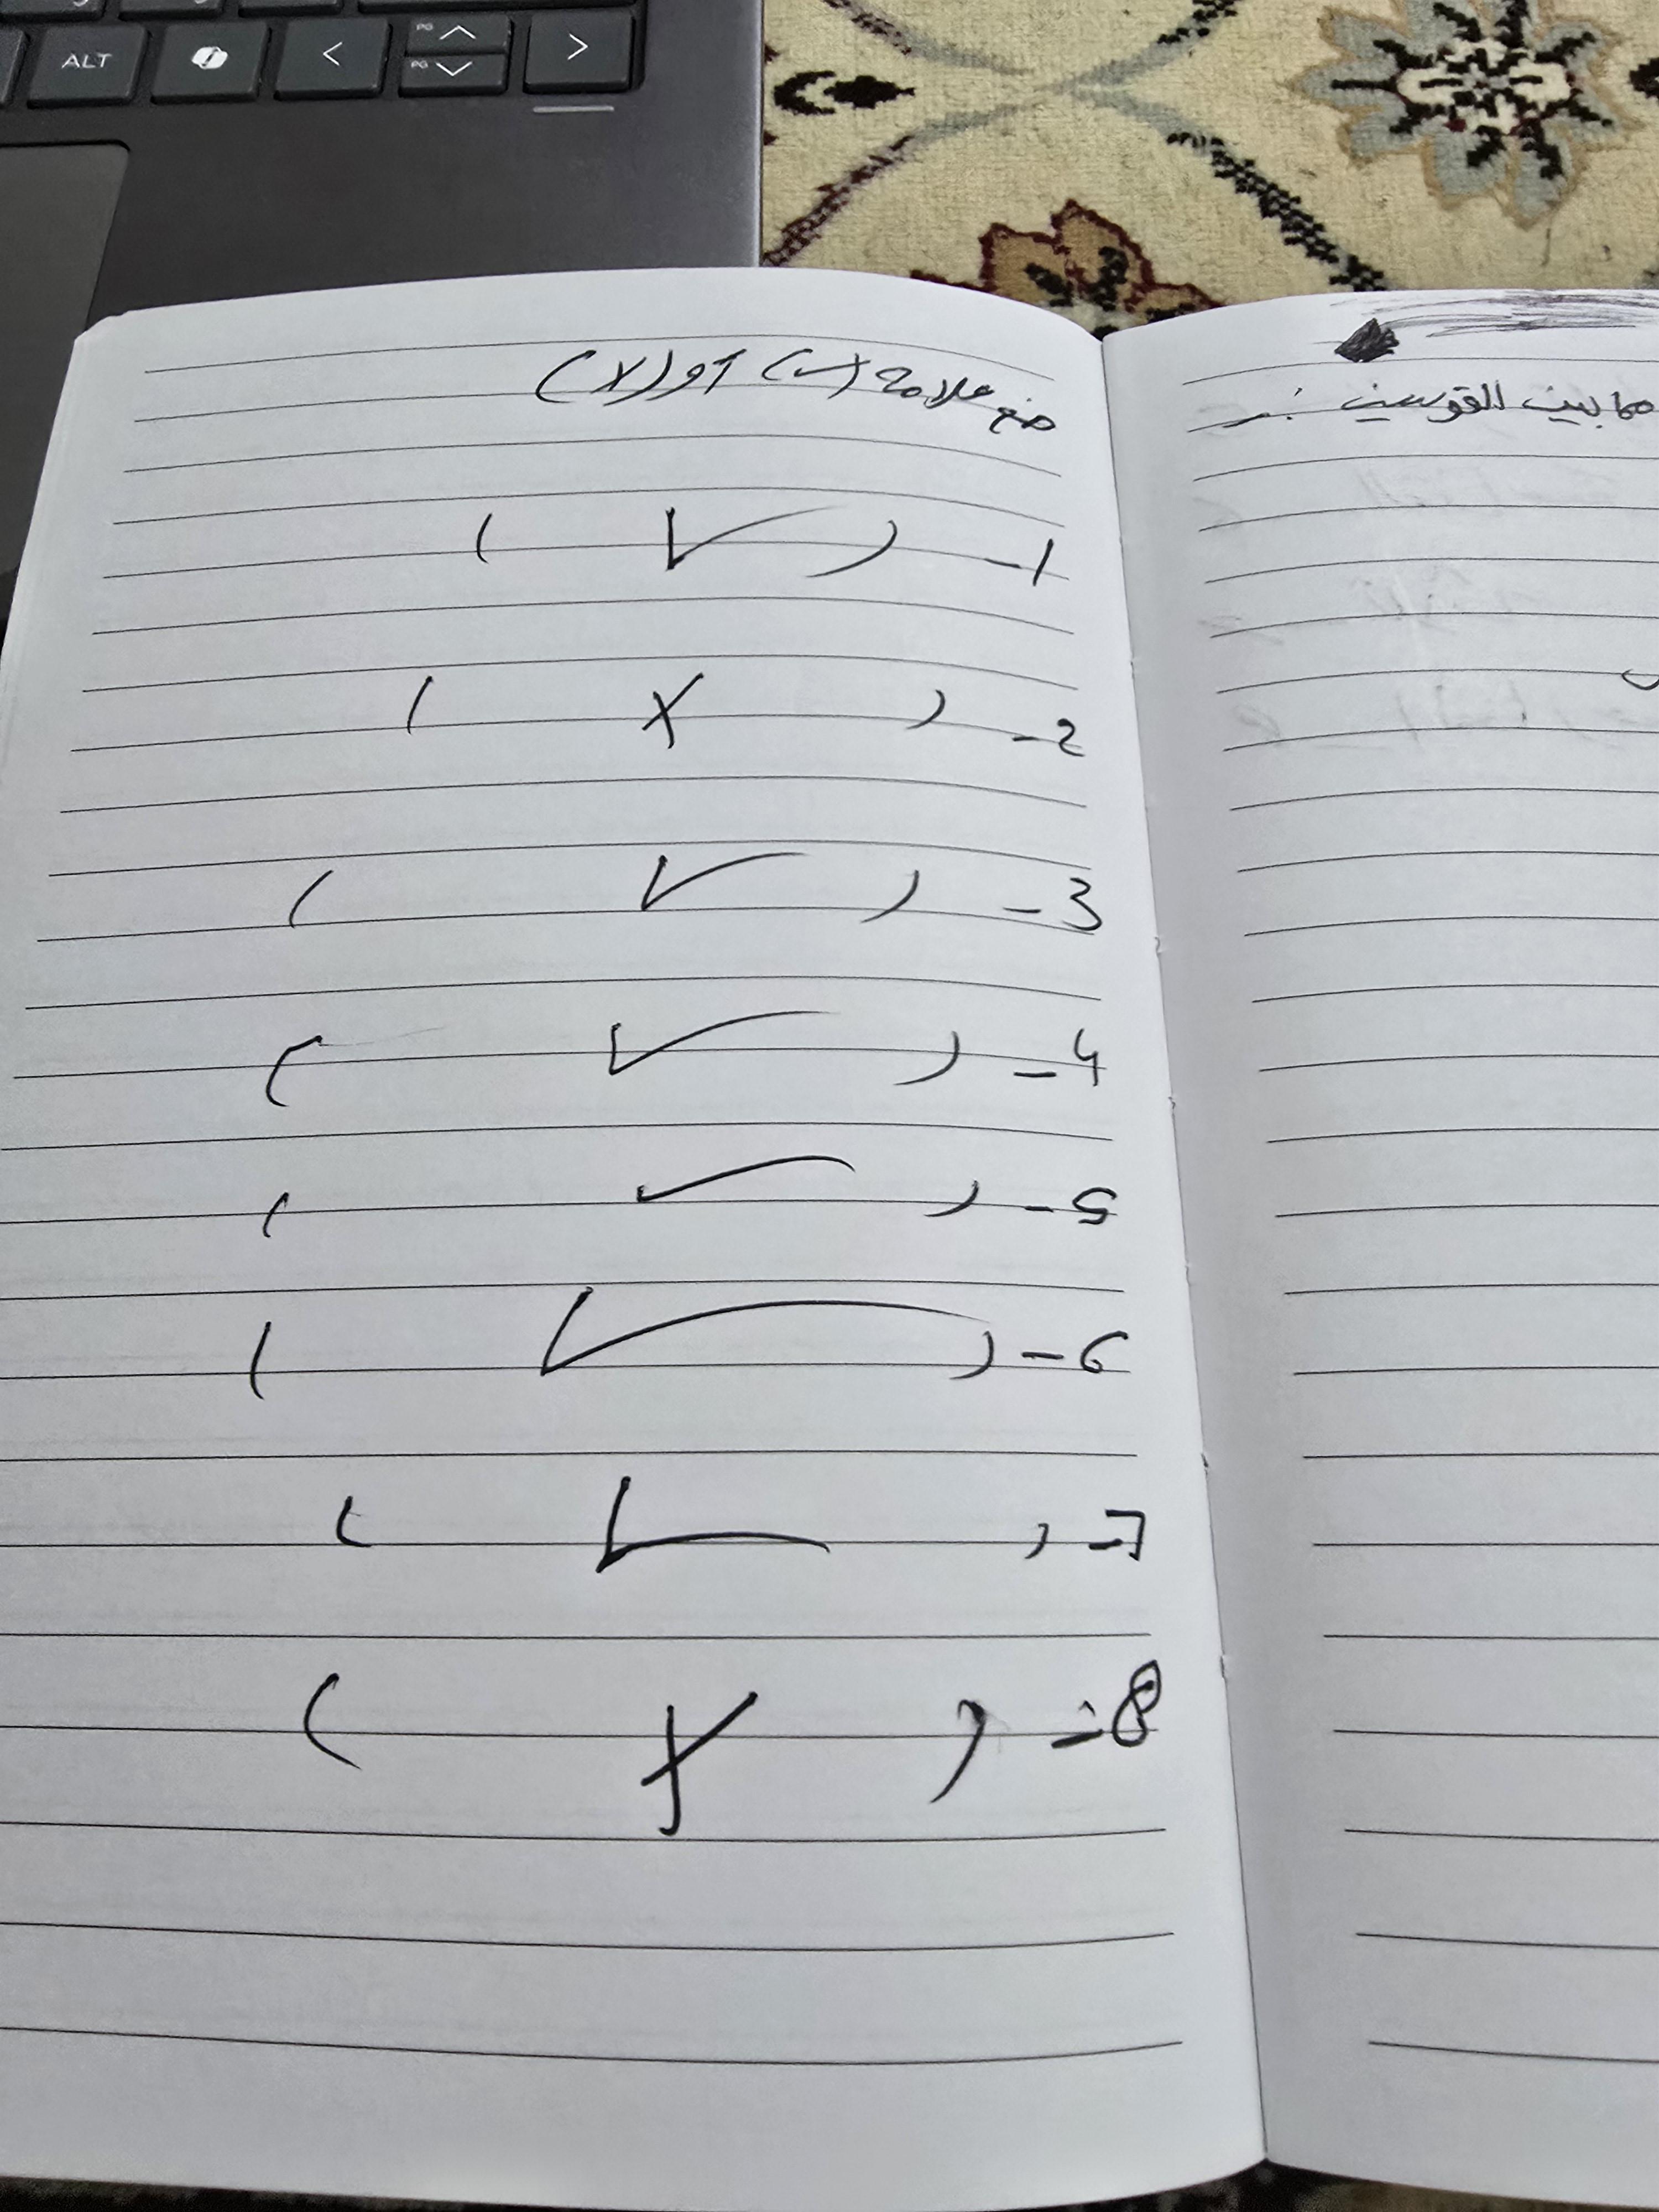 ضع علامة (✓) أو (X)
1- ( ✓ )
2- ( X )
3- ( ✓ )
4- ( ✓ )
5- ( ✓ )
6- ( ✓ )
7- ( ✓ )
8- ( X )
مما بين القوسين :-
ALT
PG
PG